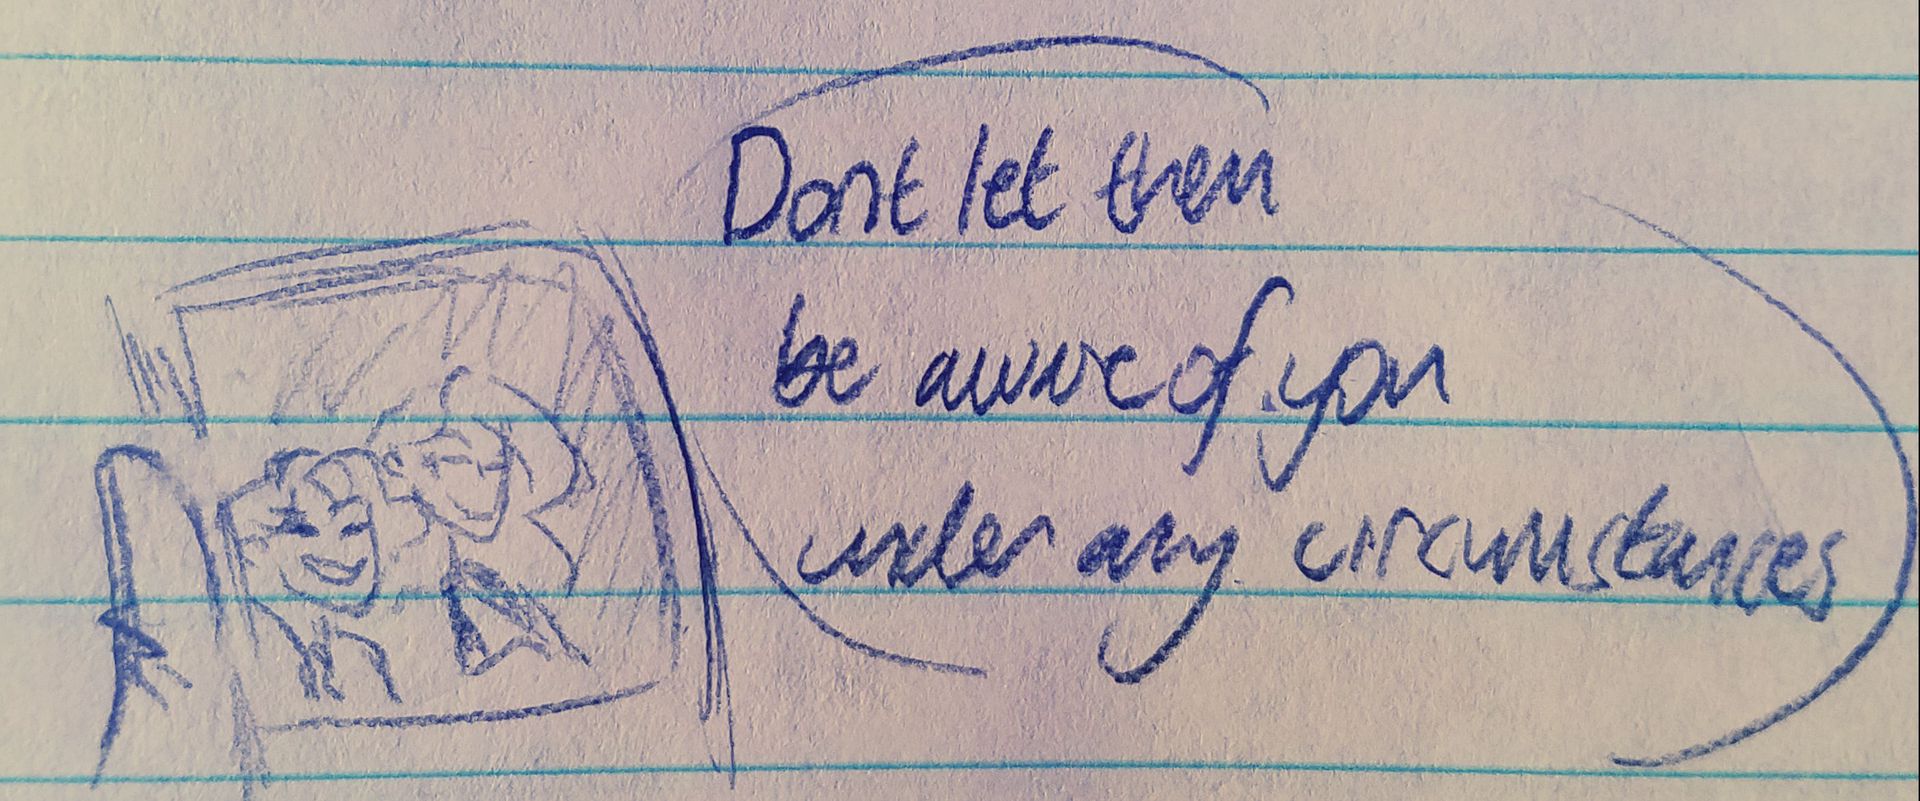 Dont let them
be aware of you
under any circumstances